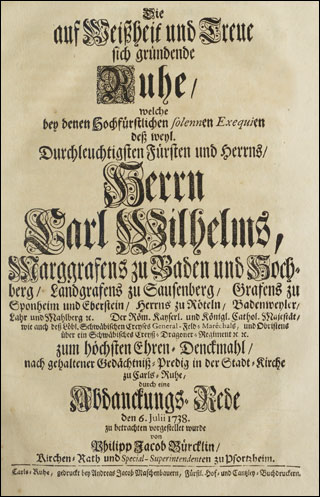 Die
auf Weißheit und Treue
sich gründende
Ruhe/
welche
bey denen Hochfürstlichen solennen Exequien
deß weyl.
Durchleuchtigsten Fürsten und Herrns/
Herrn
Carl Wilhelms,
Marggrafens zu Baden und Hoch-
berg/ Landgrafens zu Sausenberg/ Grafens zu
Sponheim und Eberstein/ Herrns zu Röteln/ Badenweyler/
Lahr und Mahlberg ꝛc. Der Röm. Kayserl. und Königl. Cathol. Majestät/
wie auch deß Löbl. Schwäbischen Creyses General-Feld-Marêchals, und Obristens
über ein Schwäbisch Creyß-Dragoner-Regiment ꝛc. ꝛc.
zum höchsten Ehren-Denckmahl/
nach gehaltener Gedächtniß-Predig in der Stadt-Kirche
zu Carls-Ruhe,
durch eine
Abdanckungs-Rede
den 6. Julii 1738.
zu betrachten vorgestellet wurde
von
Philipp Jacob Bürcklin/
Kirchen-Rath und Special-Superintendenten zu Pfortzheim.
Carls-Ruhe, gedruckt bey Andreas Jacob Maschenbauern, Fürstl. Hof- und Cantzley-Buchdruckern.